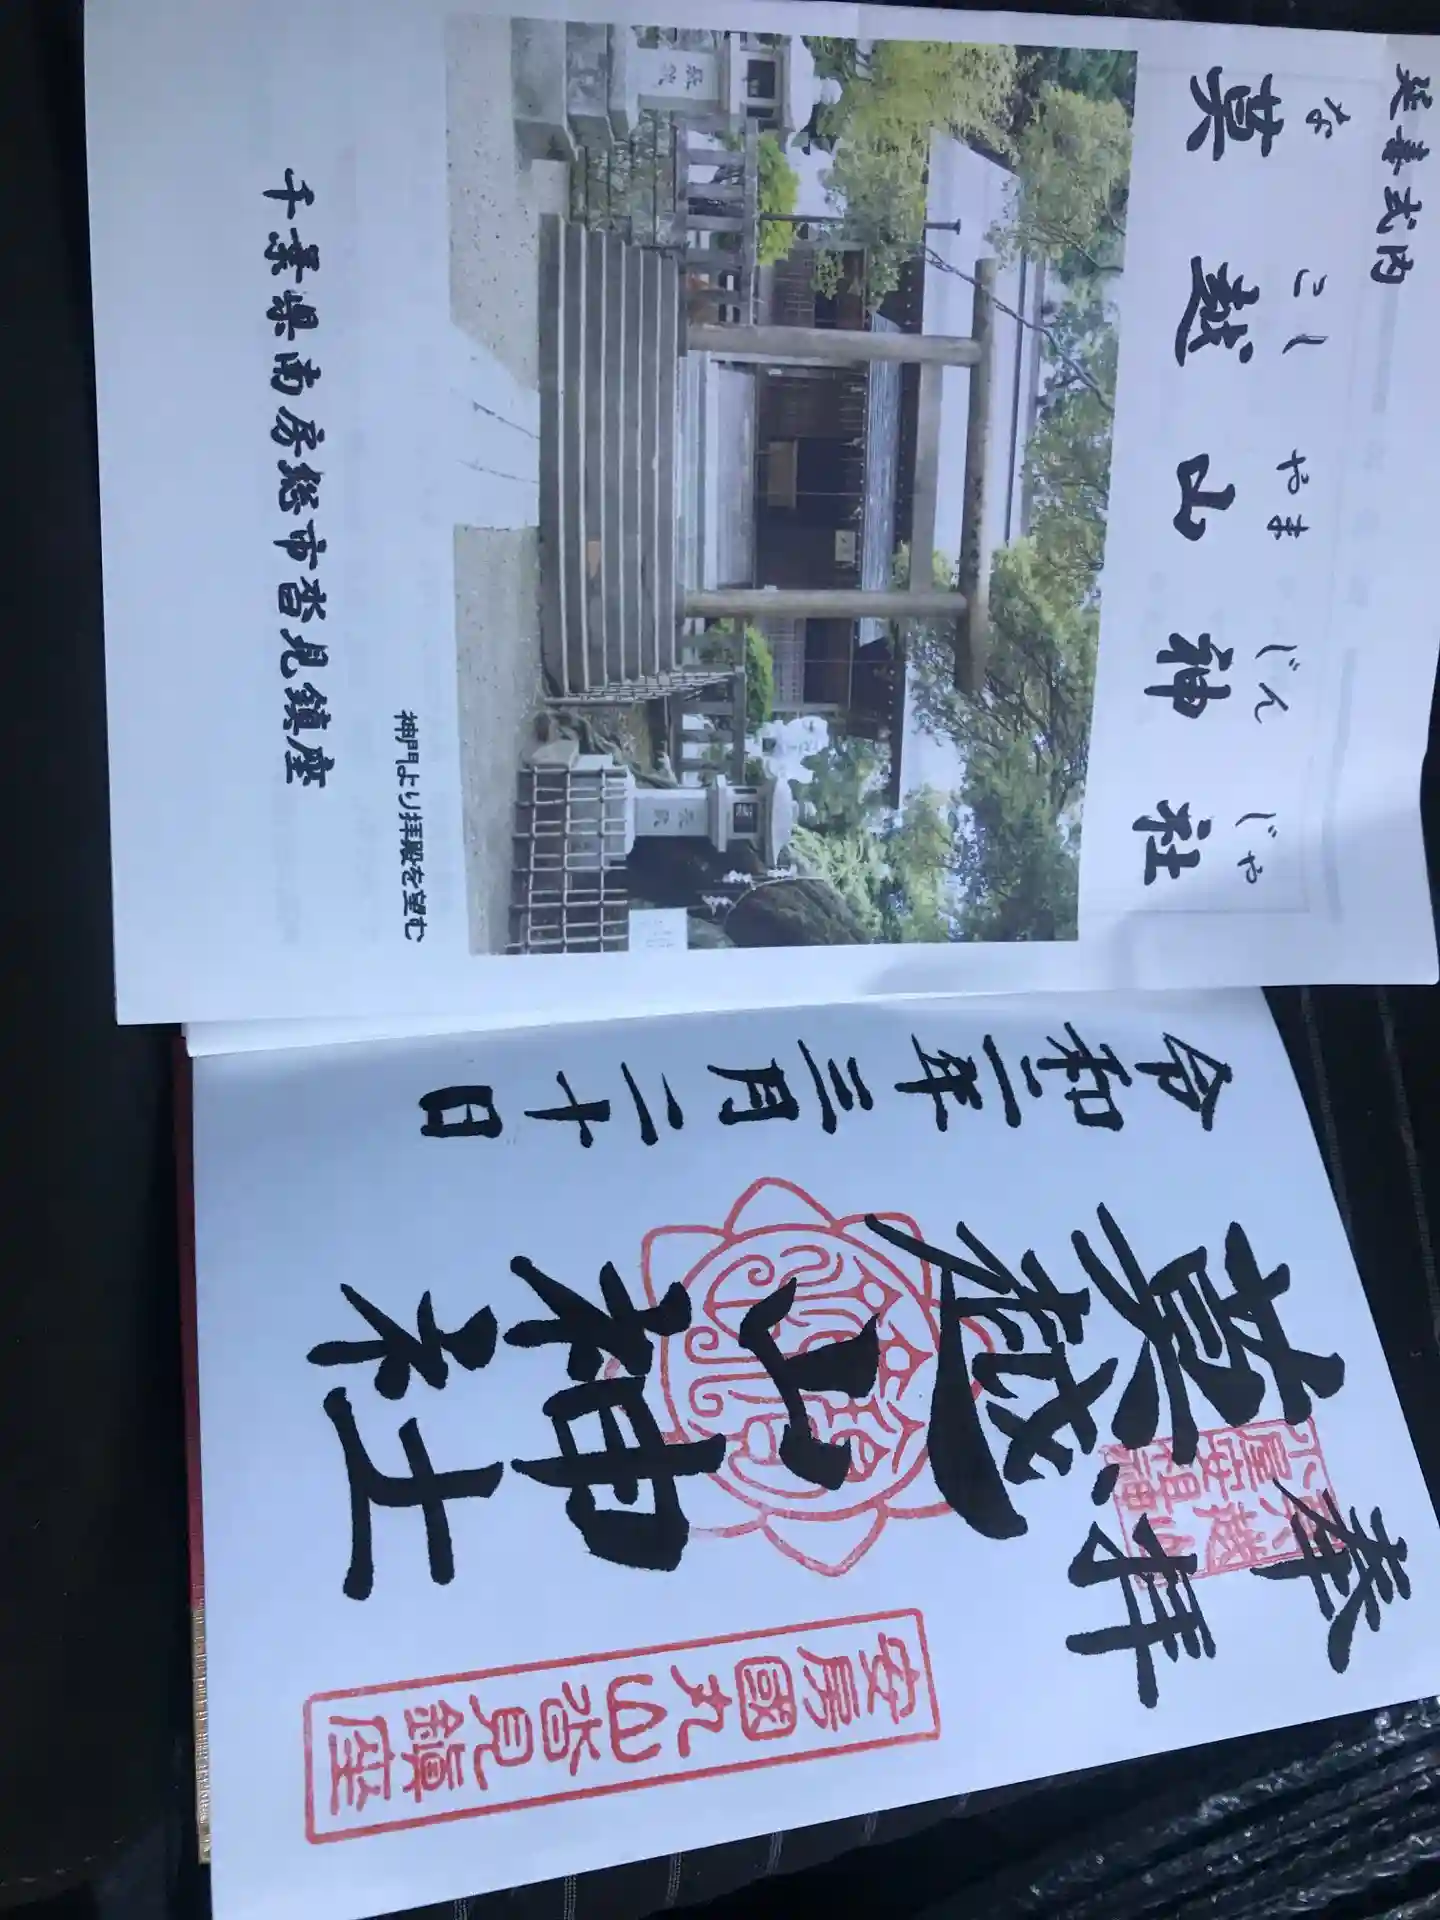 延喜式内
莫越山神社
なこしやまじんじゃ
神門より拝殿を望む
千葉県南房総市沓見鎮座
奉拝
莫越山神社
令和二年三月二十日
安房國丸山沓見鎮座